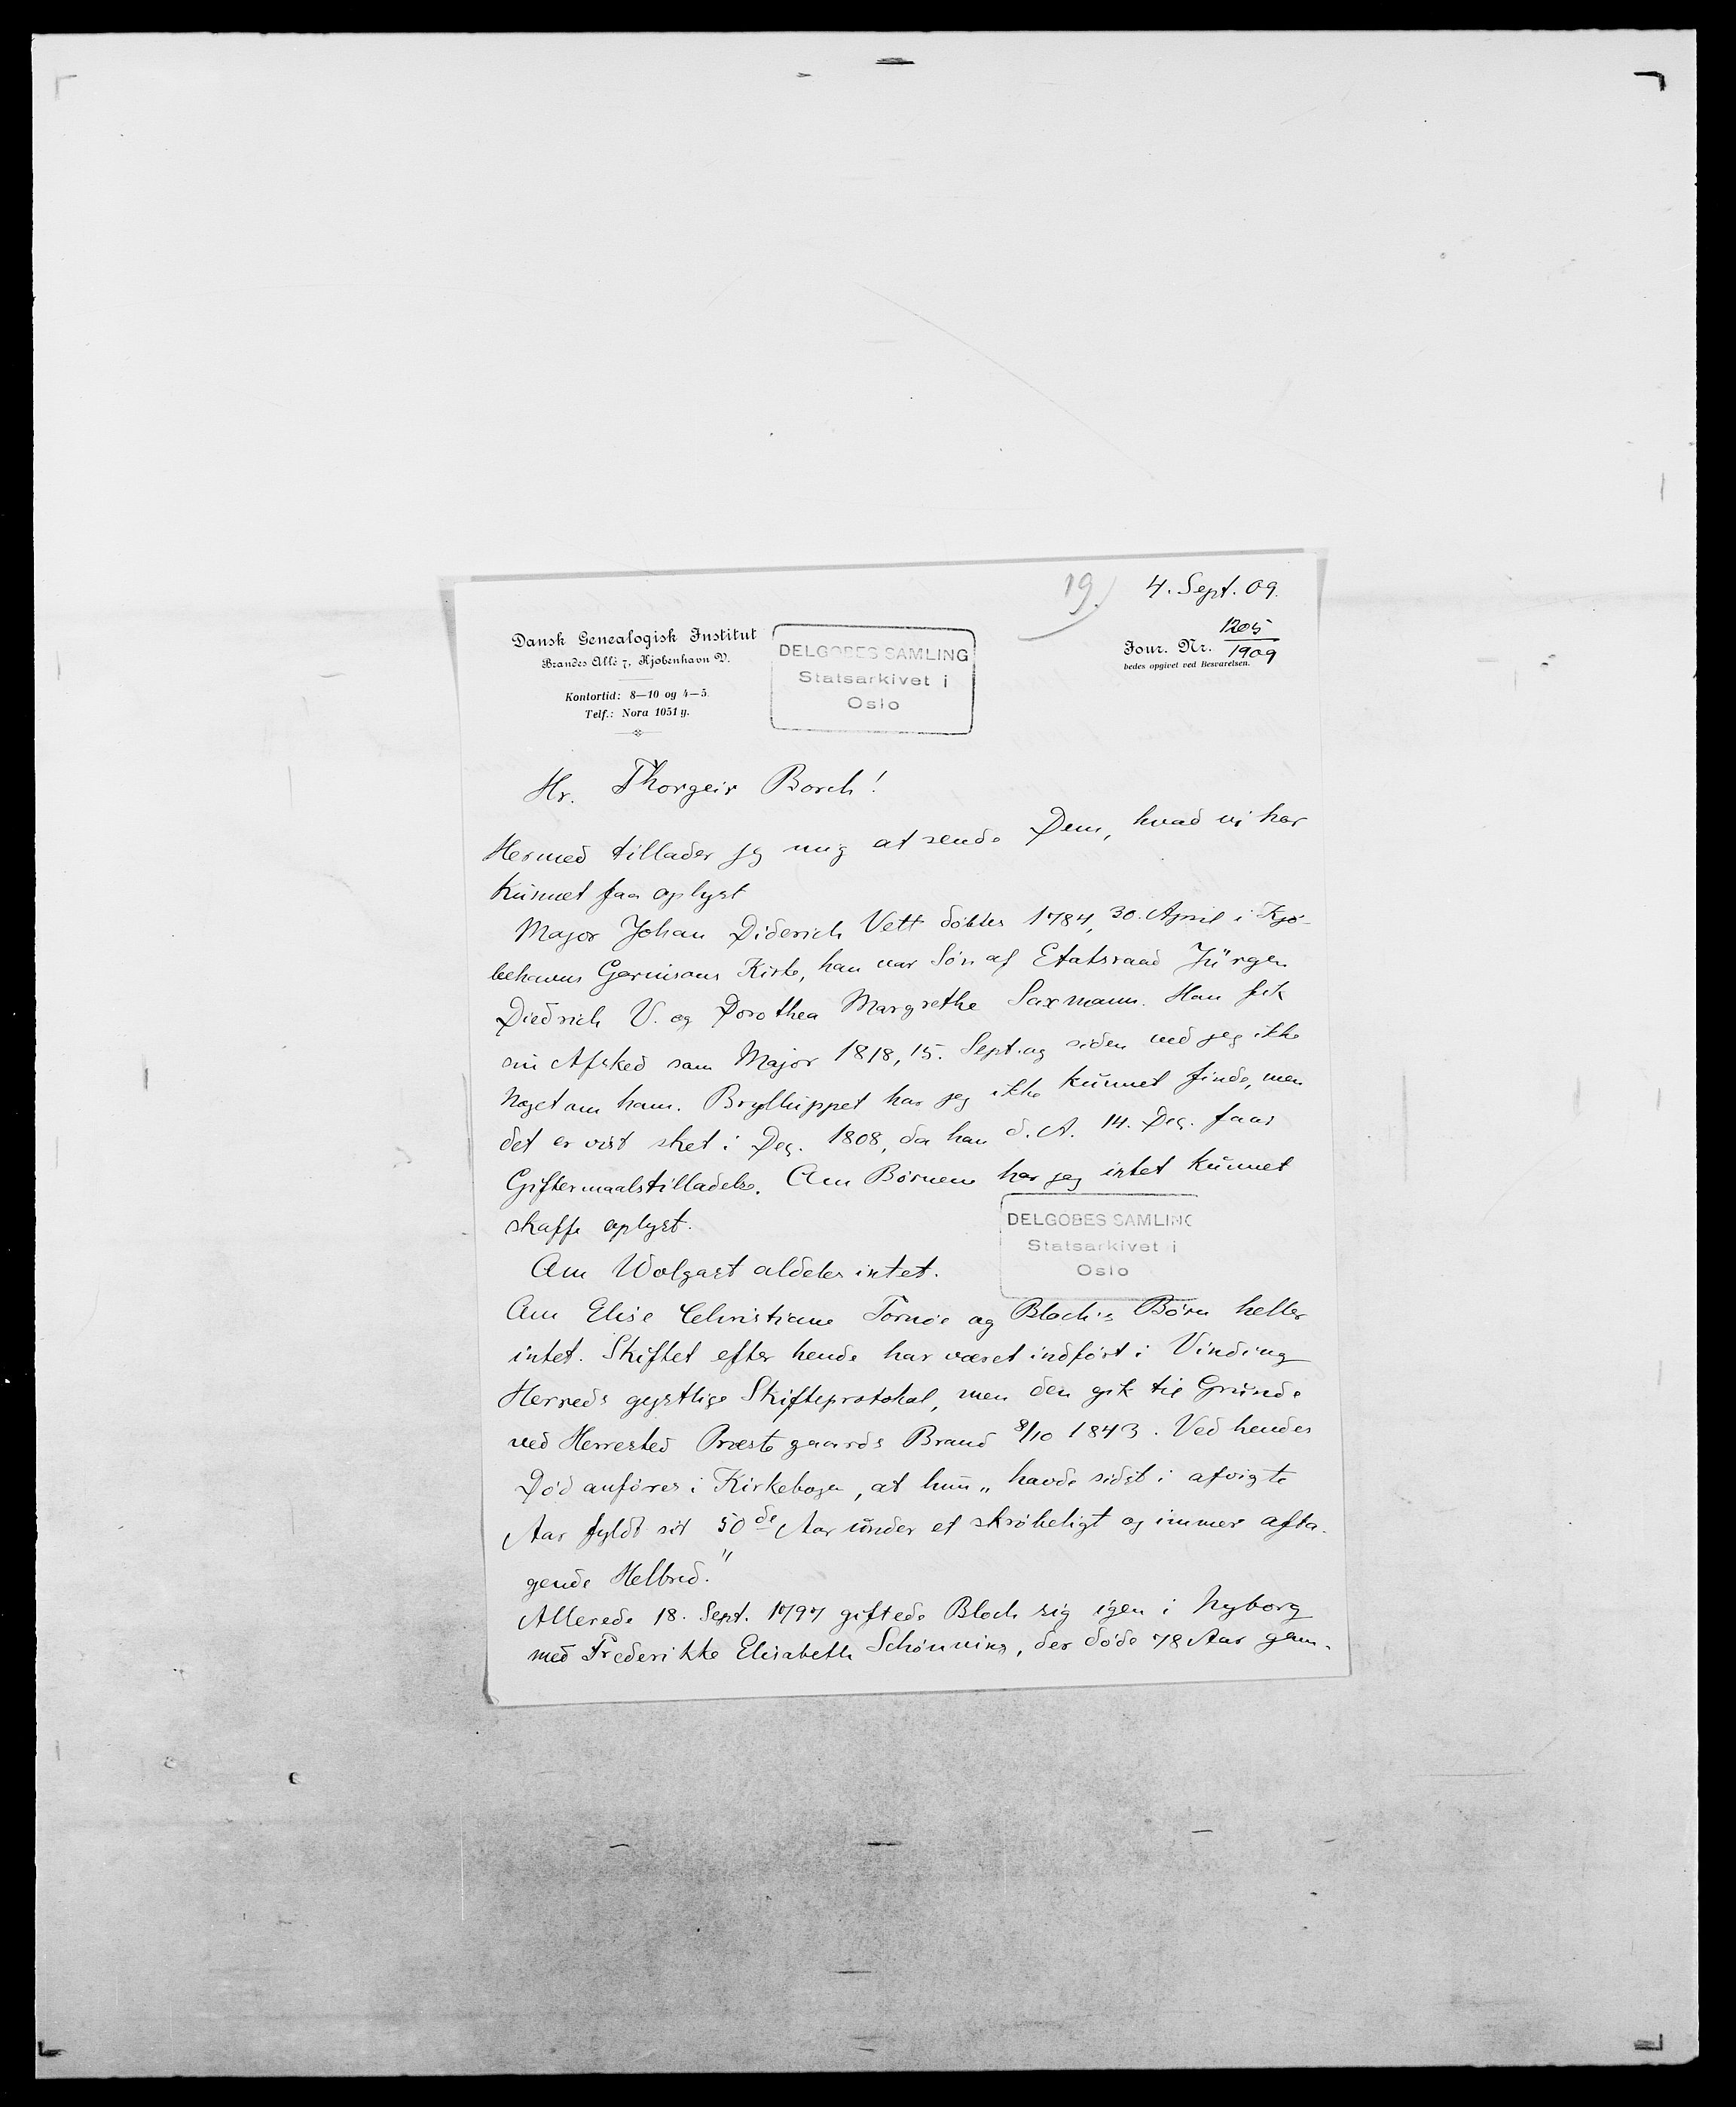 19.
4. Sept. 09.
Dansk Genealogisk Institut
Brandes Allé 7, Kjøbenhavn V.
Kontortid: 8—10 og 4—5.
Telf.: Nora 1051 y.
DELGOBES SAMLING
Statsarkivet i
Oslo
Jour. Nr. 1205/1909
bedes opgivet ved Besvarelsen.
Hr. Thorgeir Borch!
Hermed tillader jeg mig at sende Dem, hvad vi har
kunnet faa oplyst
Major Johan Diderich Vett døbtes 1784, 30. April i Kjø-
behavns Garnisons Kirke, han var Søn af Etatsraad Jürgen
Diedrich V. og Dorothea Margrethe Saxmann. Han fik
sin Afsked som Major 1818, 15. Sept. og siden ved jeg ikke
noget om ham. Brylluppet har jeg ikke kunnet finde, men
det er vist sket i Dec. 1808, da han d. A. 14. Dec. faar
Giftermaalstilladelse. Om Børnene har jeg intet kunnet
skaffe oplyst.
DELGOBES SAMLING
Statsarkivet i
Oslo
Om Wolgast aldeles intet.
Om Elise Christiane Tornøe og Bloch's Børn heller
intet. Skiftet efter hende har været indført i Vinding
Herreds gejstlige Skifteprotokol, men den gik til Grunde
ved Herrested Præstegaards Brand 8/10 1843. Ved hendes
Død anføres i Kirkebogen, at hun „havde sidst i afvigte
Aar fyldt sit 50de Aar under et skrøbeligt og immer afta-
gende Helbred."
Allerede 18. Sept. 1797 giftede Bloch sig igen i Nyborg
med Frederikke Elisabeth Schønning, der døde 78 Aar gam-